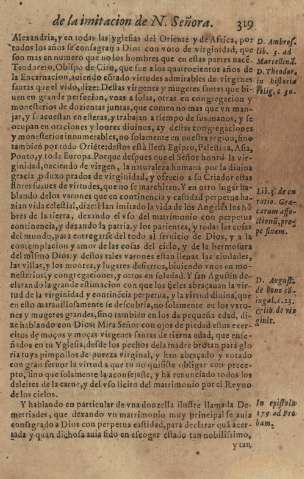 de la imitacion de N. Señora. 319
Alexandria, y en todas las yglesias del Oriente y de Africa, por
todos los años se consagran a Dios con voto de virginidad, que
son mas en numero que no los hombres que en estas partes nacē.
Teodoreto, Obispo de Ciro, que fue a los quatrocientos años de
la Encarnacion, auiendo cōtado virtudes admirables de virgenes
santas que el vido, dize: Destas virgenes y mugeres santas que bi-
uen en grande perfeccion, vnas a solas, otras en congregacion y
monesterios de dozientas juntas, que comen no mas que vn man-
jar, y se acuestan en esteras, y trabajan a tiempo de sus manos, y se
ocupan en oraciones y loores diuinos, ay destas congregaciones
y monesterios innumerables, no solamente en nuestra region, sino
tambien por todo Oriēte: destos està llena Egipto, Palestina, Asia,
Ponto, y toda Europa. Porque despues que el Señor honrò la vir-
ginidad, naciendo de virgen, la naturaleza humana por la diuina
gracia, produxo prados de virginidad, y ofrecio a su Criador estas
flores suaues de virtudes, que no se marchitan. Y en otro lugar ha-
blando de los varones que con continencia y castidad perpetua ha-
zian vida celestial, dize: Han imitado la vida de los Angeles los hō-
bres de la tierra, dexando el vso del matrimonio con perpetua
continencia, y dexando la patria, y los parientes, y todas las cosas
del mundo, para entregarse del todo al seruicio de Dios, y a la
contemplacion y amor de las cosas del cielo, y de la hermosura
del mismo Dios: y destos tales varones estan llenas las ciudades,
las villas, y los montes, y lugares desiertos, biuiendo vnos en mo-
nesterios, y congregaciones, y otros en soledad. Y san Agustin de-
clarando la grande estimacion con que los fieles abraçauan la vir-
tud de la virginidad y continēcia perpetua, y la virtud diuina, que
en esto marauillosamente se descubria, no solamente en los varo-
nes, y mugeres grandes, sino tambien en los de pequeña edad, di-
ze hablando con Dios: Mira Señor con ojos de piedad estos exer-
citos de moços y moças virgenes santas de tierna edad, que ense-
ñados en tu Yglesia, desde los pechos de la madre brotan para glo-
ria tuya pimpollos de pureza virginal, y han abraçado y votado
con gran feruor la virtud a que tu no quisiste obligar con prece-
pto, sino que solamente la aconsejaste, y hā renunciado todos los
deleites de la carne, y del vso licito del matrimonio por el Reyno
de los cielos.
Y hablando en particular de vna donzella ilustre llamada De-
metriades, que dexando vn matrimonio muy principal se auia
consagrado a Dios con perpetua castidad, para declarar quā acer-
tada y quan dichosa auia sido en escoger estado tan nobilissimo,
y tan
D. Ambros.
lib. 3. ad
Marcellinā.
D. Theodor.
in historia
relig. c. 30.
Lib. 5. de cu
ratio. Græ-
corum affe-
ctionū, pro-
pe finem.
D. August.
de bono cō-
iugal. c. 23.
In epistola
179. ad Pro-
bam.